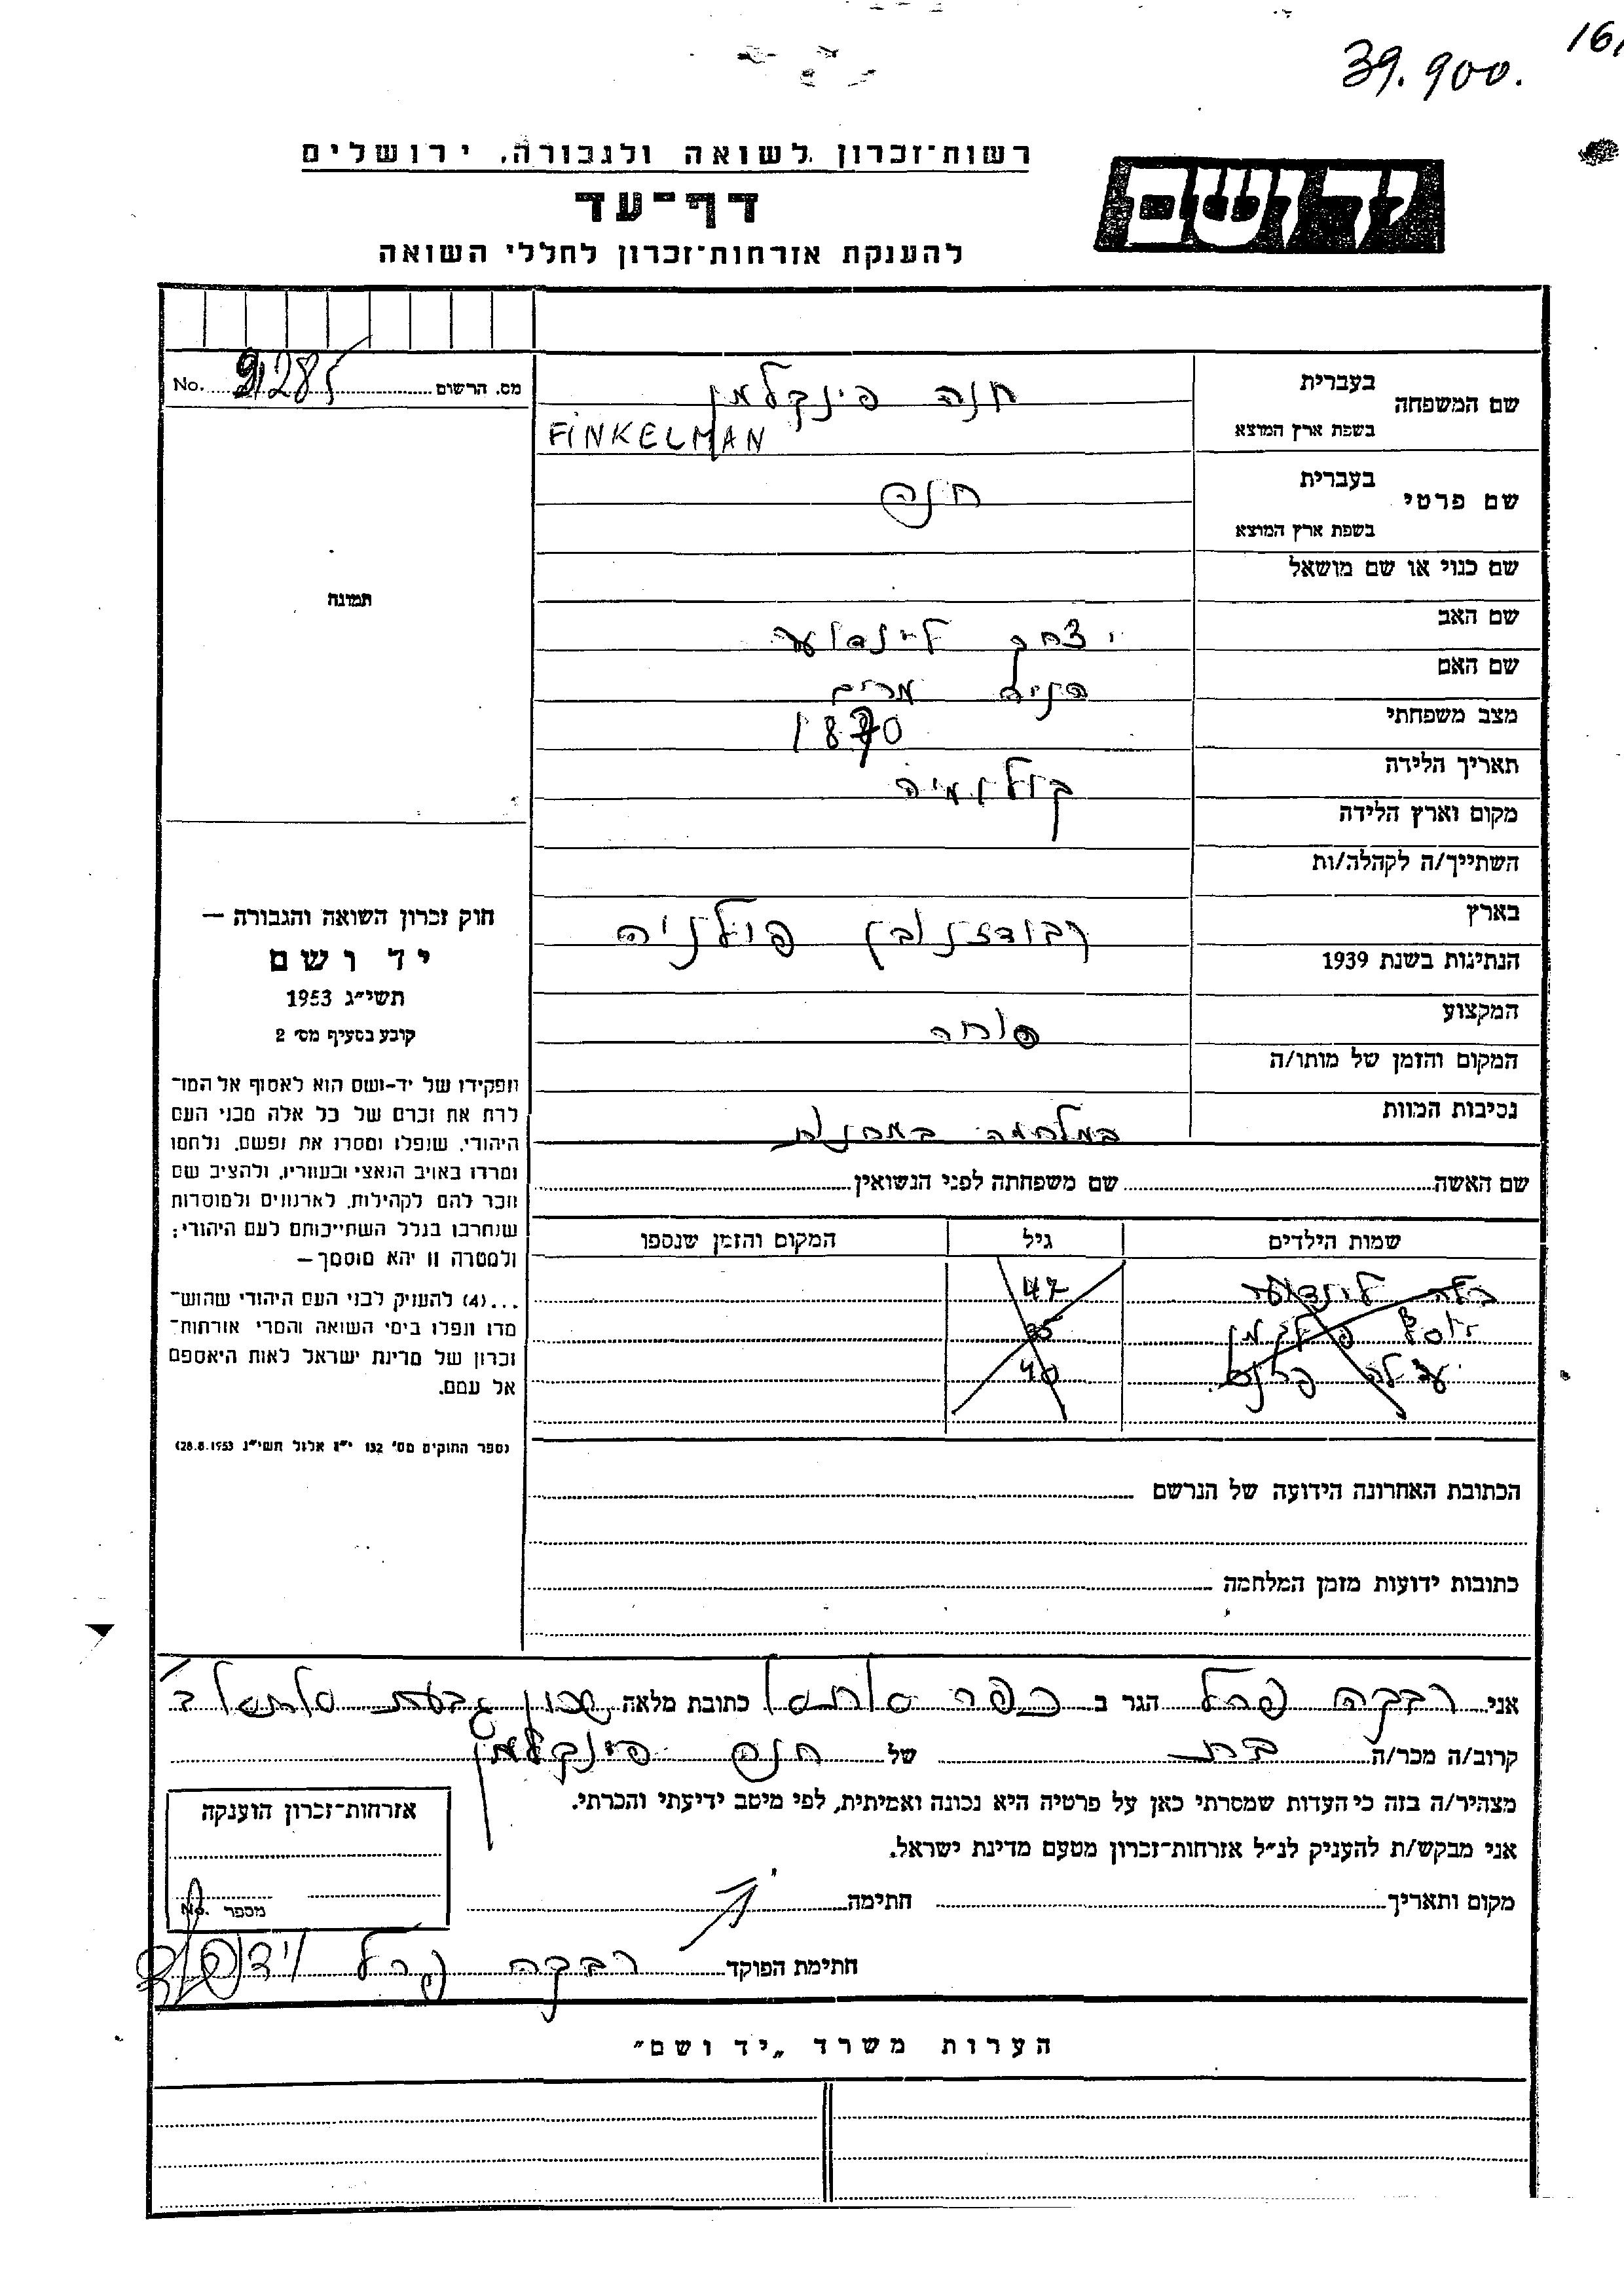 39.900.
רשות־זכרון לשואה ולגבורה, ירושלים
דף־עד
להענקת אזרחות־זכרון לחללי השואה
יד ושם
No. מס. הרשום
שם המשפחה בעברית חנה פינקלמן
בשפת ארץ המוצא FINKELMAN
שם פרטי בעברית חנה
בשפת ארץ המוצא
שם כנוי או שם מושאל
שם האב יצחק
שם האם מרים
מצב משפחתי 1870
תאריך הלידה קולומיה
מקום וארץ הלידה
השתייך/ה לקהלה/ות
בארץ פולניה
הנתינות בשנת 1939
המקצוע
המקום והזמן של מותו/ה
נסיבות המוות במלחמה במחנות
תמונה
חוק זכרון השואה והגבורה —
יד ושם
תשי״ג 1953
קובע בסעיף מס׳ 2
תפקידו של יד-ושם הוא לאסוף אל המו־
לדת את זכרם של כל אלה מבני העם
היהודי, שנפלו ומסרו את נפשם, נלחמו
ומרדו באויב הנאצי ובעוזריו, ולהציב שם
וזכר להם לקהילות, לארגונים ולמוסדות
שנחרבו בגלל השתייכותם לעם היהודי;
ולמטרה זו יהא מוסמך —
...(4) להעניק לבני העם היהודי שהוש־
מדו ונפלו בימי השואה והמרי אזרחות־
זכרון של מדינת ישראל לאות היאספם
אל עמם.
(ספר החוקים מס׳ 132 י״ז אלול תשי״ג 28.8.1953)
שם האשה שם משפחתה לפני הנשואין
שמות הילדים גיל המקום והזמן שנספו
47
40
הכתובת האחרונה הידועה של הנרשם
כתובות ידועות מזמן המלחמה
אני רבקה פרל הגר ב כפר כתובת מלאה שכון גבעת
קרוב/ה מכר/ה בת של חנה פינקלמן
מצהיר/ה בזה כי העדות שמסרתי כאן על פרטיה היא נכונה ואמיתית, לפי מיטב ידיעתי והכרתי.
אני מבקש/ת להעניק לנ״ל אזרחות־זכרון מטעם מדינת ישראל.
מקום ותאריך חתימה
חתימת הפוקד רבקה פרל
אזרחות־זכרון הוענקה
מספר No.
הערות משרד „יד ושם״